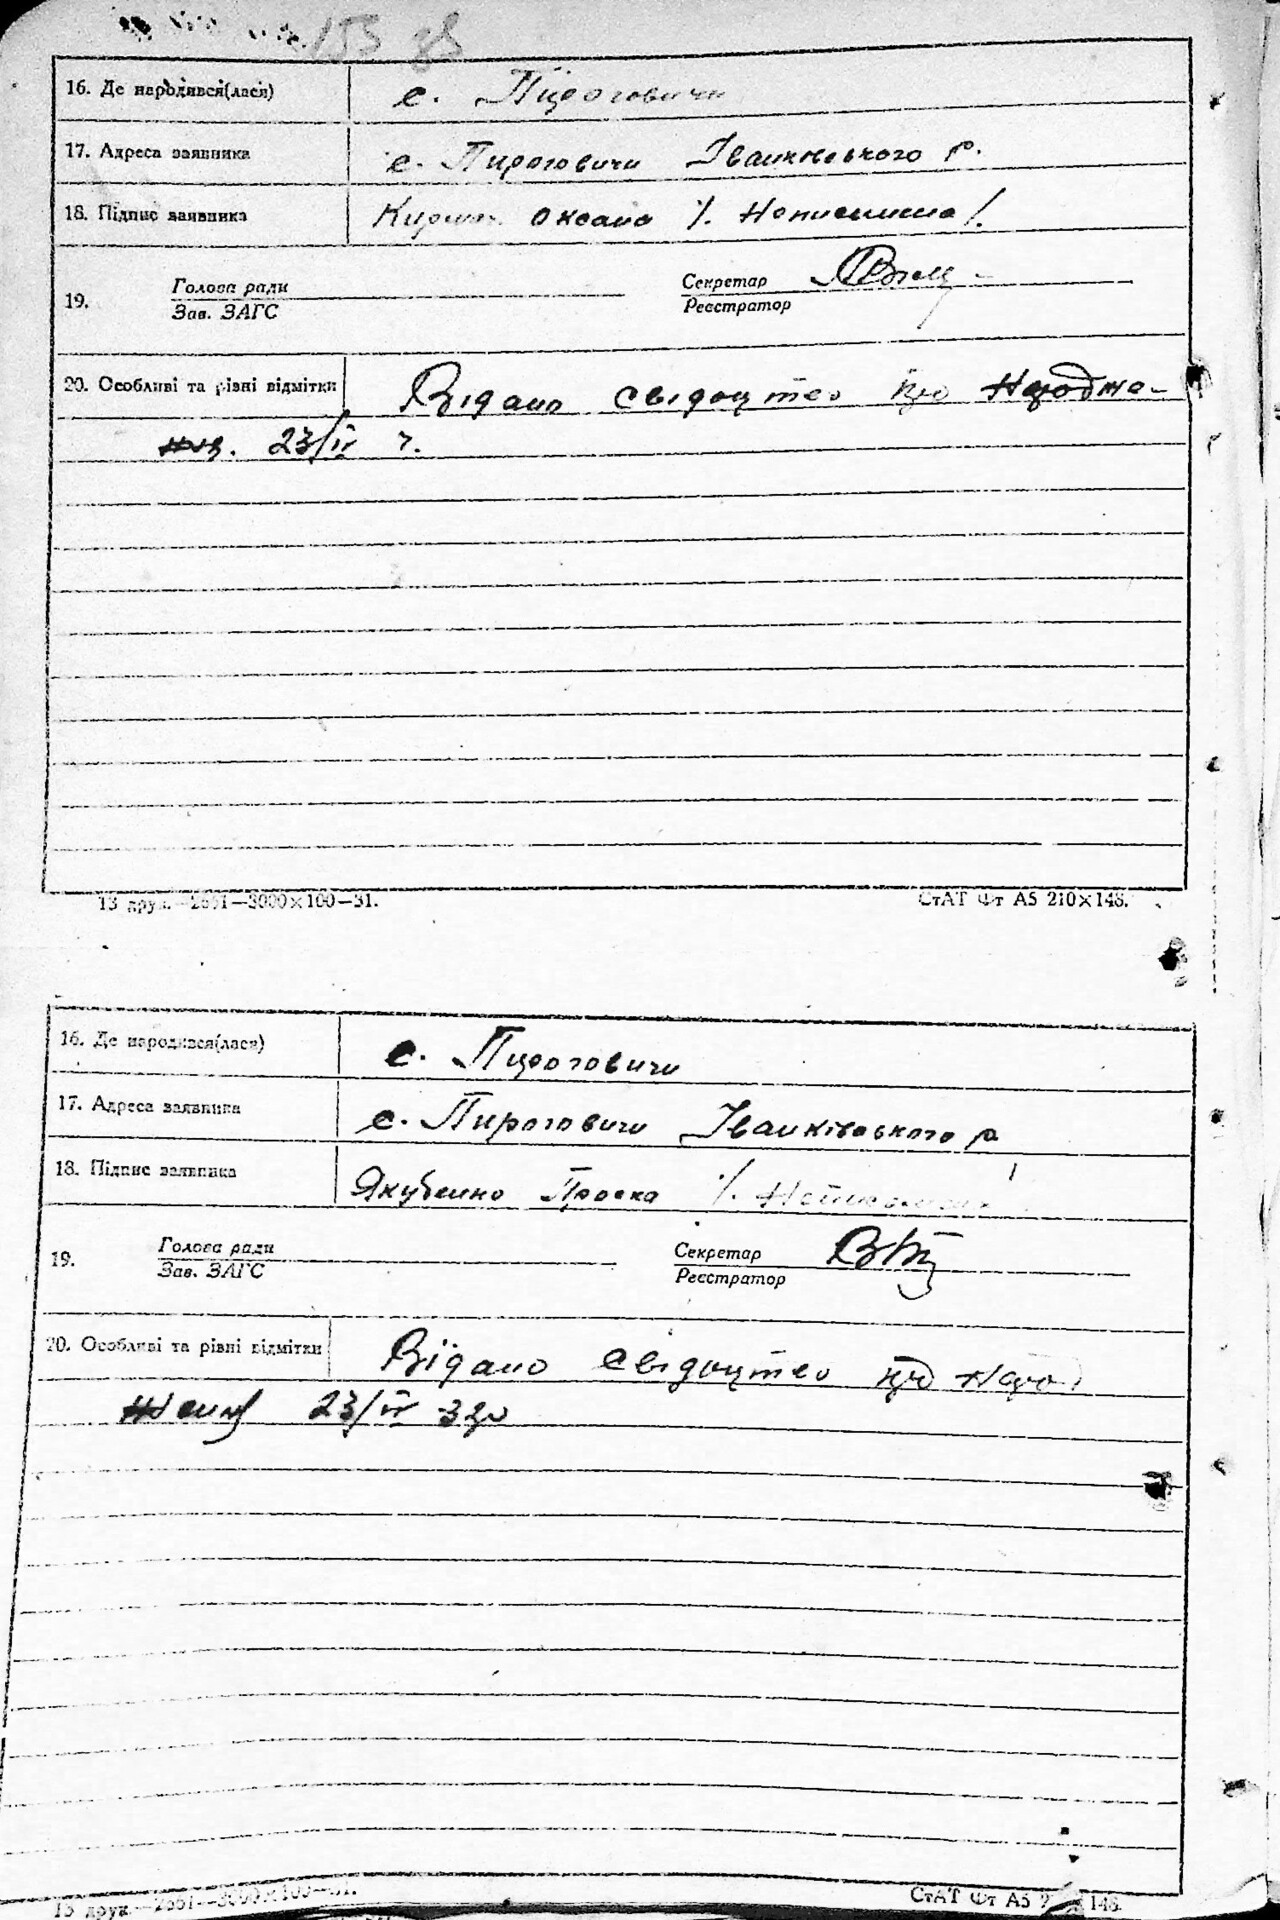 153 зв
16. Де народився(лася) с. Пироговичи
17. Адреса заявника с. Пироговичи Іванківського р.
18. Підпис заявника Оксана /. Неписьмена /.
19. Голова ради Секретар
Зав. ЗАГС Реєстратор
20. Особливі та різні відмітки Відано свідоцтво про Народже-
ння. 23/IV
13 друк.—2551—3000×100—31. СтАТ Фт А5 210×148.
16. Де народився(лася) с. Пироговичи
17. Адреса заявника с. Пироговичи Іванківського р
18. Підпис заявника Якубенко Проска /.
19. Голова ради Секретар
Зав. ЗАГС Реєстратор
20. Особливі та різні відмітки Відано свідоцтво про Наро
ження 23/IV 32р
13 друк.—2551—3000×100—31. СтАТ Фт А5 148.